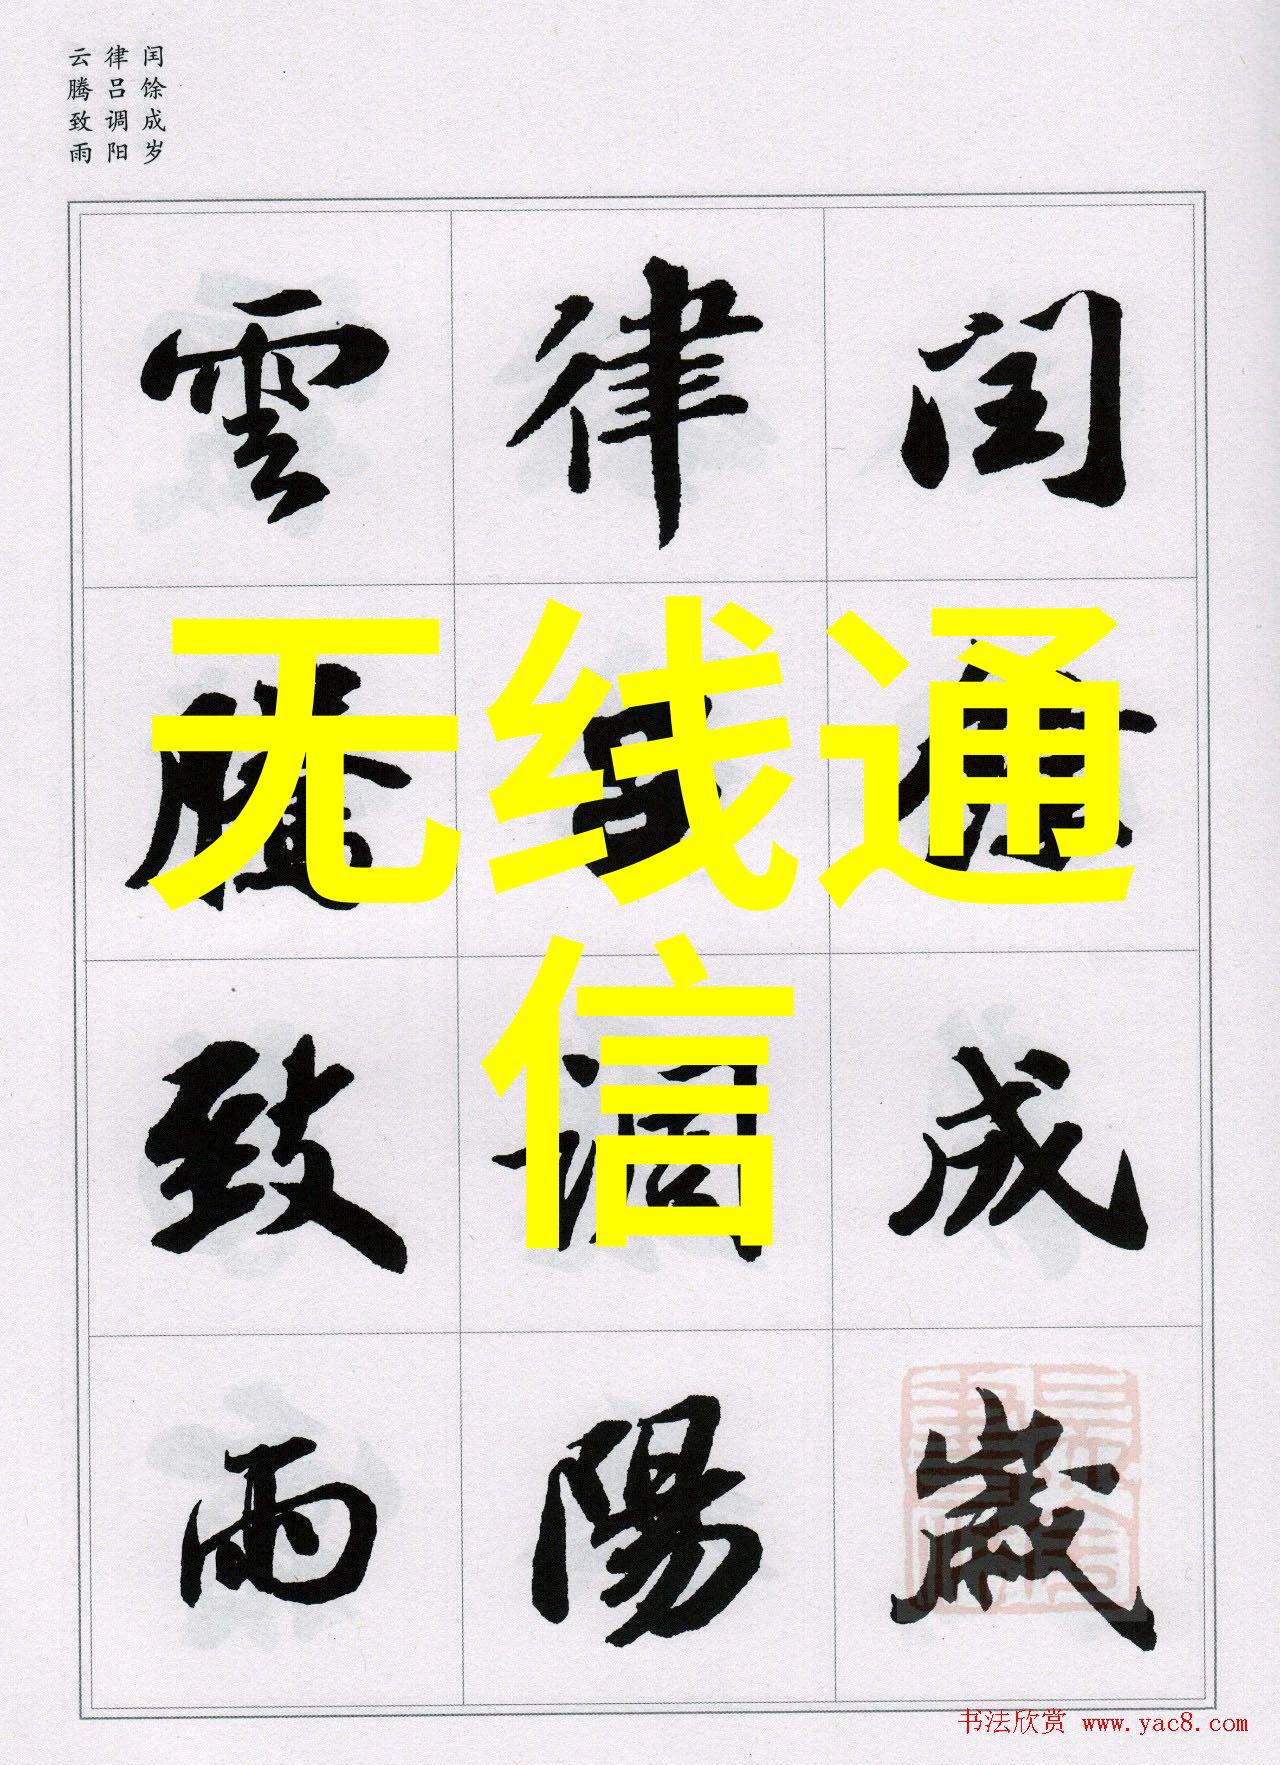 闰馀成岁
律吕调阳
云腾致雨
閏餘成歲
律吕調陽
雲騰致雨
无线通
信
书法欣赏 www.yac8.com